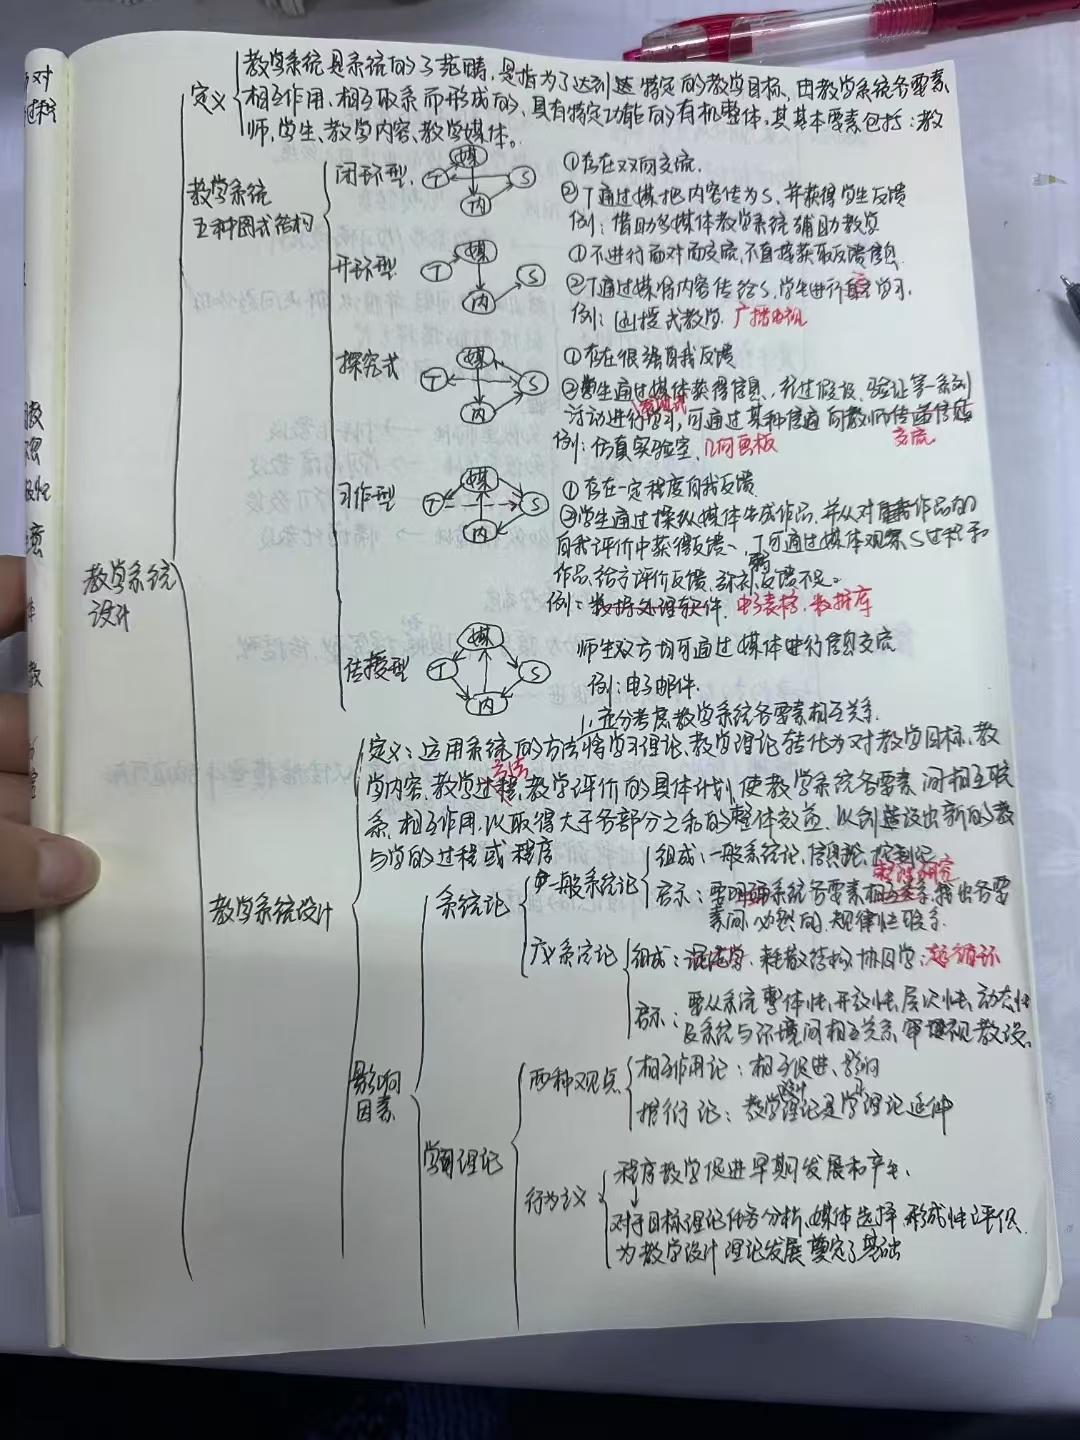 定义
教学系统是系统的子范畴，是指为了达到特定的教学目标，由教学系统各要素
相互作用、相互联系而形成的，具有特定功能的有机整体，其基本要素包括：教
师，学生、教学内容、教学媒体。
教学系统
五种图式结构
闭环型
媒
T
S
内
①存在双向交流.
②T通过媒把内容传为S，并获得学生反馈
例：借助多媒体教学系统辅助教学
开环型
媒
T
S
内
①不进行面对面交流，不直接获取反馈信息
②T通过媒将内容传给S，学生进行自主学习.
例：函授式教学. 广播电视
探究式
媒
T
S
内
①存在很强自我反馈
②学生通过媒体获得信息，经过假设、验证等一系列
活动进行学习，可通过某种信道向教师传递信息
交流
例：仿真实验室、几何画板
习作型
媒
T
S
内
①存在一定程度自我反馈
②学生通过操纵媒体生成作品，并从对作品的
自我评价中获得反馈、T可通过媒体观察S过程和
作品，给予评价反馈，弥补反馈不足。
例：数据处理软件. 电子表格、数据库
传授型
媒
T
S
内
师生双方均可通过媒体进行信息交流
例：电子邮件.
教学系统
设计
充分考虑教学系统各要素相互关系.
教学系统设计
定义：运用系统的方法将学习理论、教学理论转化为对教学目标、教
学内容、教学过程、教学评价的具体计划，使教学系统各要素间相互联
方法
系，相互作用，以取得大于各部分之和的整体效益，以创造设出新的教
与学的过程或程序
影响
因素
系统论
一般系统论
组成：一般系统论，信息论，控制论
启示：要明确系统各要素相互关系，找出各要
素间必然的，规律性联系.
广义系统论
组成：混沌学、耗散结构、协同学、超循环
启示：要从系统整体性、开放性、层次性、动态性
及系统与环境间相互关系审视教设.
学习理论
两种观点
相互作用论：相互促进、影响
推衍论：教学理论是学理论延伸
设计
习
行为主义
程序教学促进早期发展和产生.
对于目标理论任务分析、媒体选择、形成性评价.
为教学设计理论发展奠定了基础